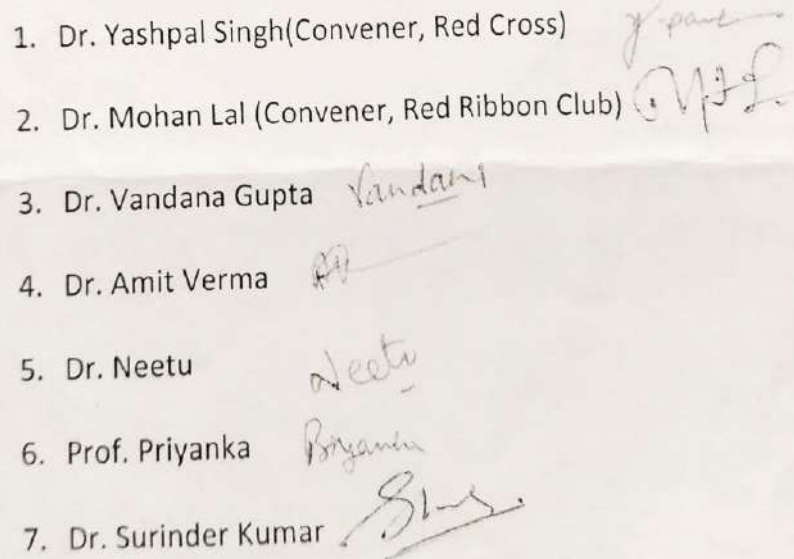 1. Dr. Yashpal Singh(Convener, Red Cross)
2. Dr. Mohan Lal (Convener, Red Ribbon Club)
3. Dr. Vandana Gupta Vandana
4. Dr. Amit Verma
5. Dr. Neetu Neetu
6. Prof. Priyanka Priyanka
7. Dr. Surinder Kumar